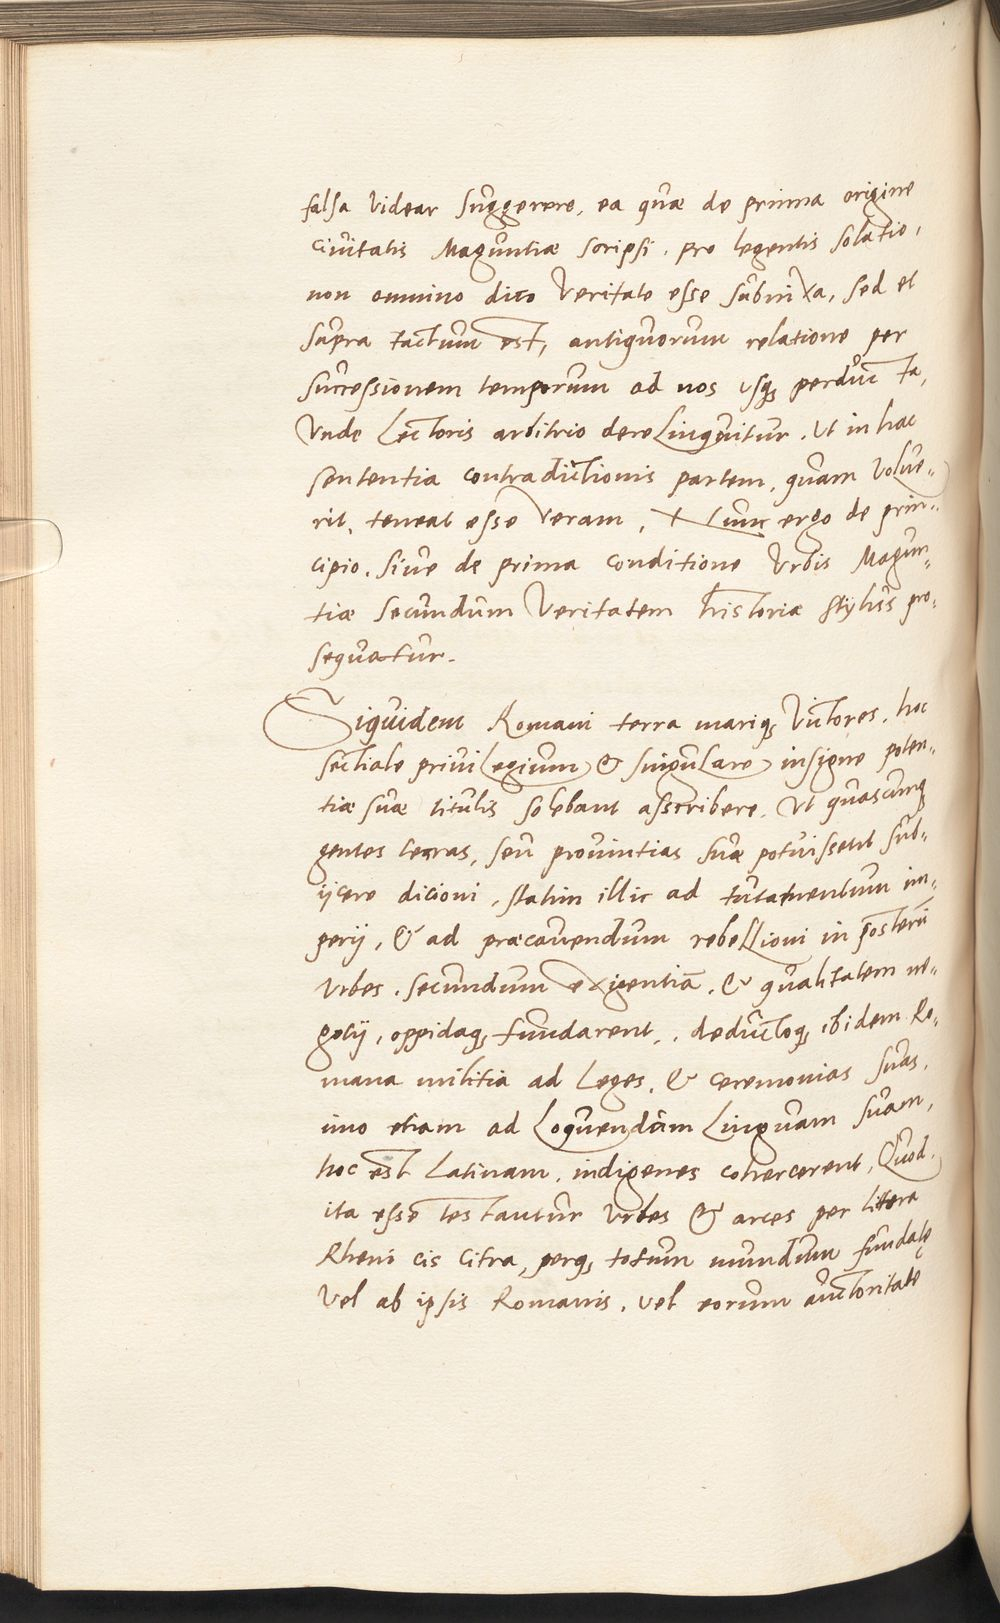 falsa videar suggerere, ea quæ de prima origine
ciuitatis Maguntiæ scripsi. pro legentis solatio,
non omnino dico veritate esse subnixa, sed et
supra tactum est, antiquorum relatione per
successionem temporum ad nos usq; perducta,
Vnde Lectoris arbitrio derelinquitur. Ut in hac
sententia contradictionis partem, quam volue-
rit, teneat esse veram, Nunc ergo de prin-
cipio. siue de prima conditione Vrbis Magun-
tiæ secundum veritatem historiæ stylus pro-
sequatur.
Siquidem Romani terra mariq; Victores, hoc
speciale priuilegium & singulare insigne poten-
tiæ suæ titulis solebant asscribere. Ut quascumq;
gentes terras, seu prouintias suæ potuissent sub-
ijcere dicioni, statim illic ad tutamentum im-
perij, & ad præcauendum rebellioni in posterũ
Vrbes. secundum exigentiã. & qualitatem ne-
gotij, oppidaq; fundarent,. deductoq; ibidem Ro-
mana militia ad Leges, & ceremonias suas,
imo etiam ad Loquendam Linguam suam,
hoc est Latinam, indigenes cohercerent, Quod
ita esse testantur Vrbes & arces per littora
Rheni cis citra, perq; totum mundum fundatę
Vel ab ipsis Romanis. vel eorum auctoritate